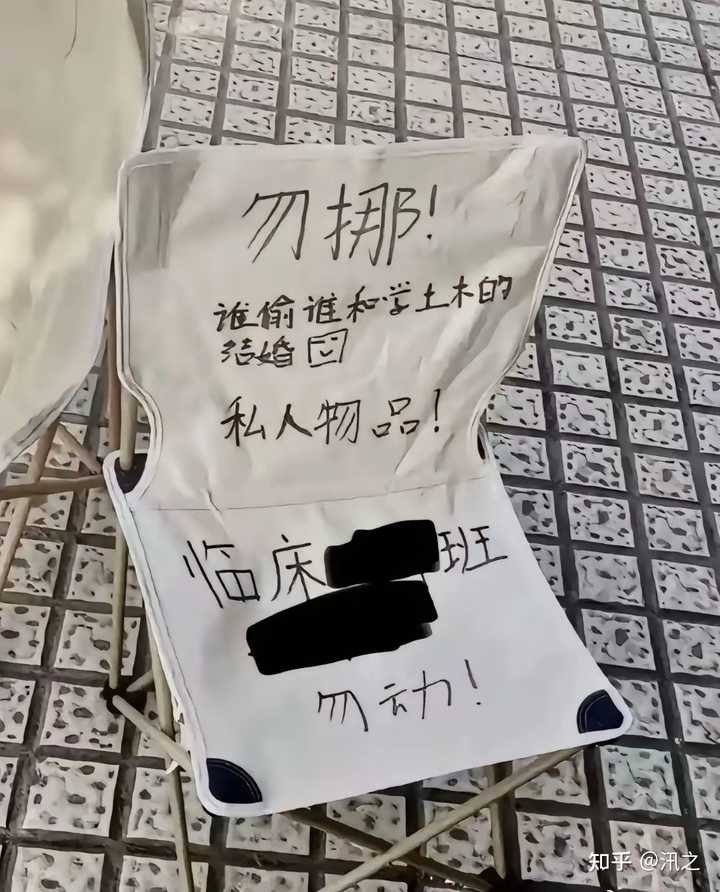 勿挪!
谁偷谁和学土木的
结婚
私人物品!
临床 班
勿动!
知乎 @汛之